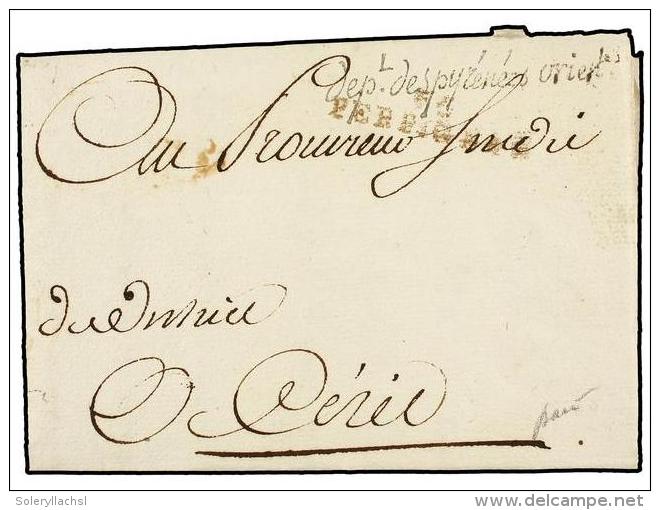 depᵗ. L despyrénées orientˡᵉˢ
PERPIGNAN
Au Procureur Sindic
du District
A Céret
Soleryllachsl
delcampe.net